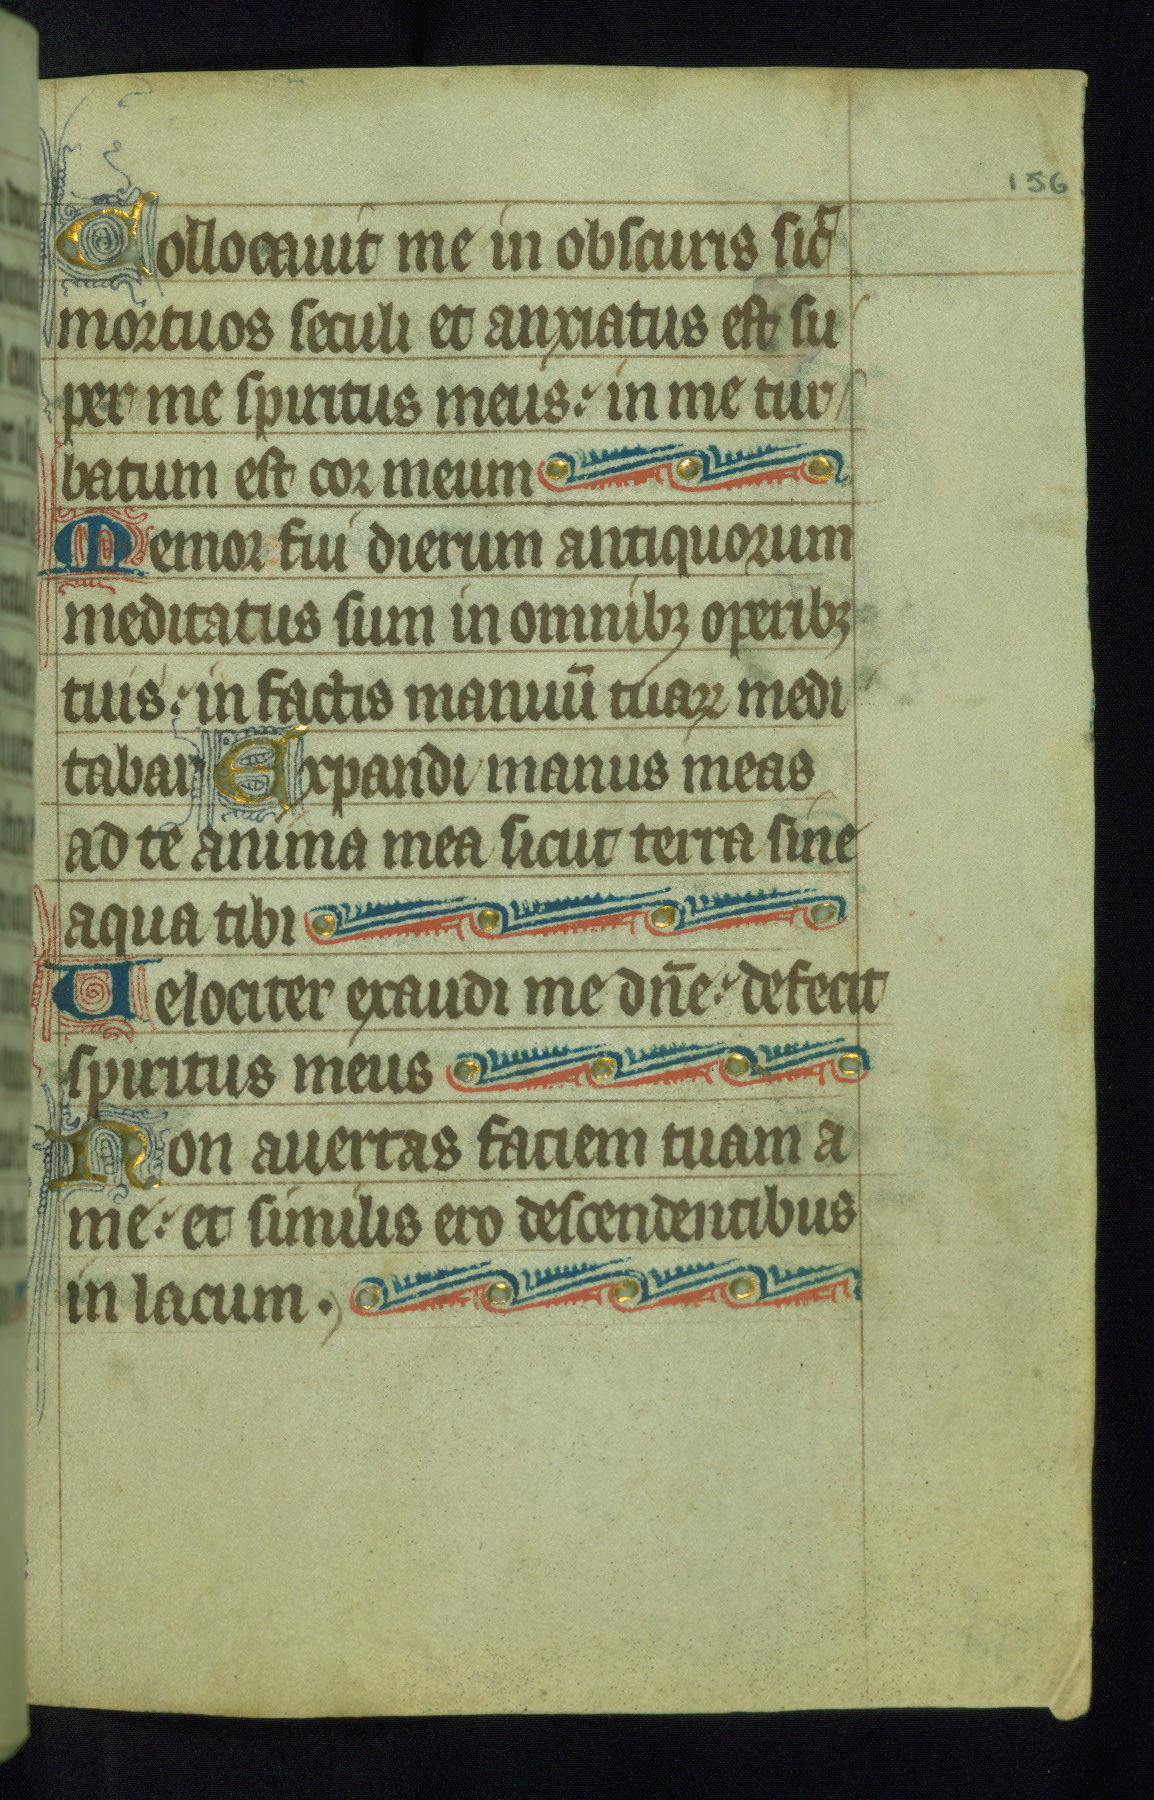 156
Collocauit me in obscuris sic̄
mortuos seculi et anxiatus est su
per me spiritus meus: in me tur
batum est cor meum
Memor fui dierum antiquorum
meditatus sum in omnibꝫ operibꝫ
tuis: in factis manuū tuaꝝ medi
tabar Expandi manus meas
ad te anima mea sicut terra sine
aqua tibi
Uelociter exaudi me dn̄e: defecit
spiritus meus
Non auertas faciem tuam a
me: et similis ero descendentibus
in lacum.